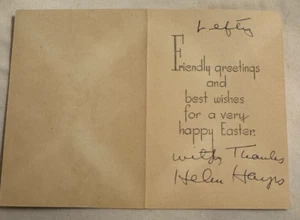 Lefty
Friendly greetings
and
best wishes
for a very
happy Easter.
with Thanks
Helen Hayes